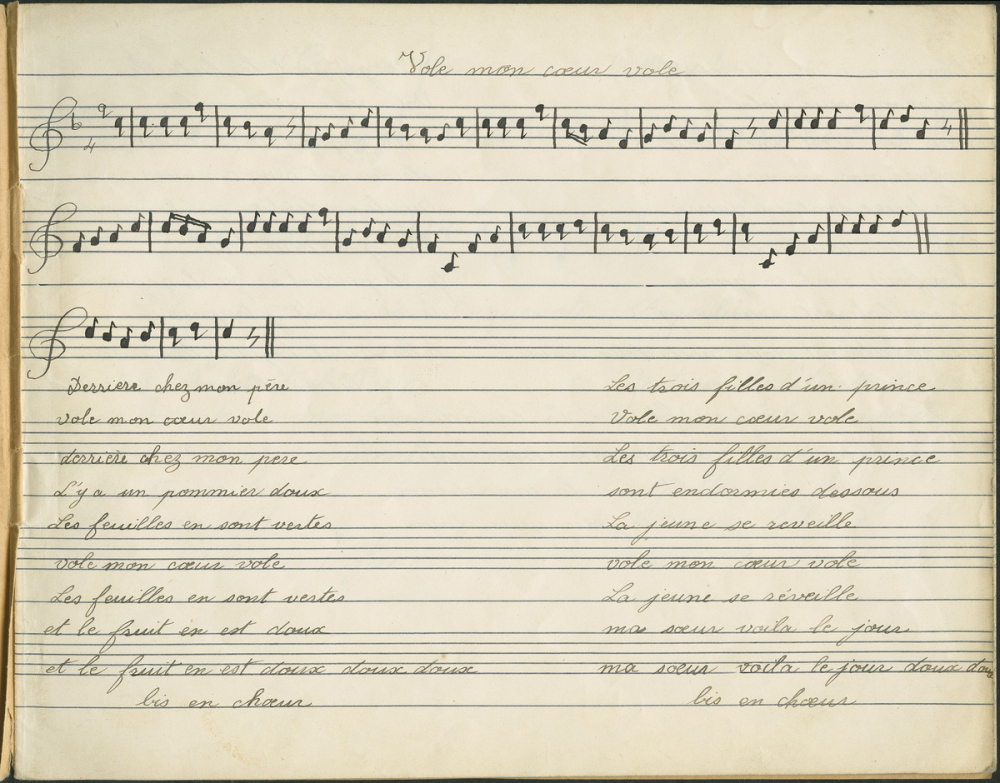 Vole mon cœur vole
2
4
Derriere chez mon père
vole mon cœur vole
derriere chez mon pere
L'y a un pommier doux
Les feuilles en sont vertes
vole mon cœur vole
Les feuilles en sont vertes
et le fruit en est doux
et le fruit en est doux doux doux
bis en chœur
Les trois filles d'un prince
Vole mon cœur vole
Les trois filles d'un prince
sont endormies dessous
La jeune se reveille
vole mon cœur vole
La jeune se réveille
ma sœur voila le jour
ma sœur voila le jour doux doux
bis en chœur